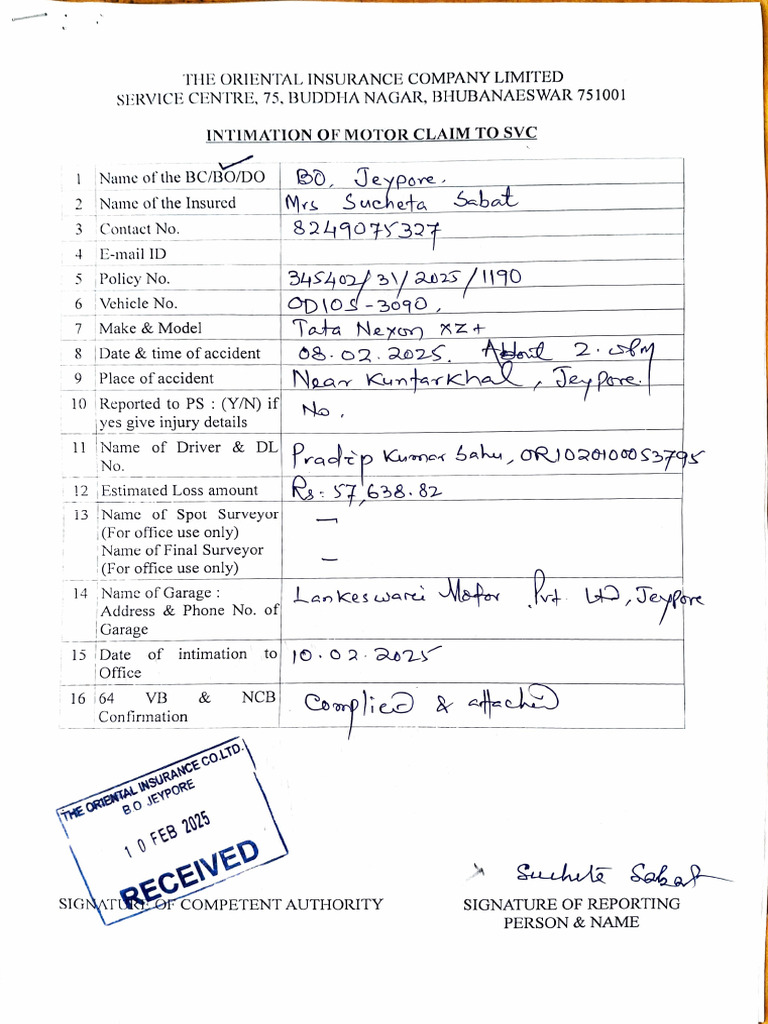 THE ORIENTAL INSURANCE COMPANY LIMITED
SERVICE CENTRE, 75, BUDDHA NAGAR, BHUBANAESWAR 751001
INTIMATION OF MOTOR CLAIM TO SVC
1 Name of the BC/BO/DO BO, Jeypore.
2 Name of the Insured Mrs Sucheta Sabat
3 Contact No. 8249075327
4 E-mail ID
5 Policy No. 345402/31/2025/1190
6 Vehicle No. OD10S-3090,
7 Make & Model Tata Nexon XZ+
8 Date & time of accident 08.02.2025. About 2.
9 Place of accident Near Kuntarkhal, Jeypore.
10 Reported to PS : (Y/N) if No.
yes give injury details
11 Name of Driver & DL Pradip Kumar Sahu, OR1020100053795
No.
12 Estimated Loss amount Rs: 57,638.82
13 Name of Spot Surveyor —
(For office use only)
Name of Final Surveyor —
(For office use only)
14 Name of Garage : Lankeswari Motor Pvt. Ltd, Jeypore
Address & Phone No. of
Garage
15 Date of intimation to 10.02.2025
Office
16 64 VB & NCB Complied & attached
Confirmation
THE ORIENTAL INSURANCE CO.LTD.
B.O JEYPORE
10 FEB 2025
RECEIVED
Sucheta Sabat
SIGNATURE OF COMPETENT AUTHORITY
SIGNATURE OF REPORTING
PERSON & NAME